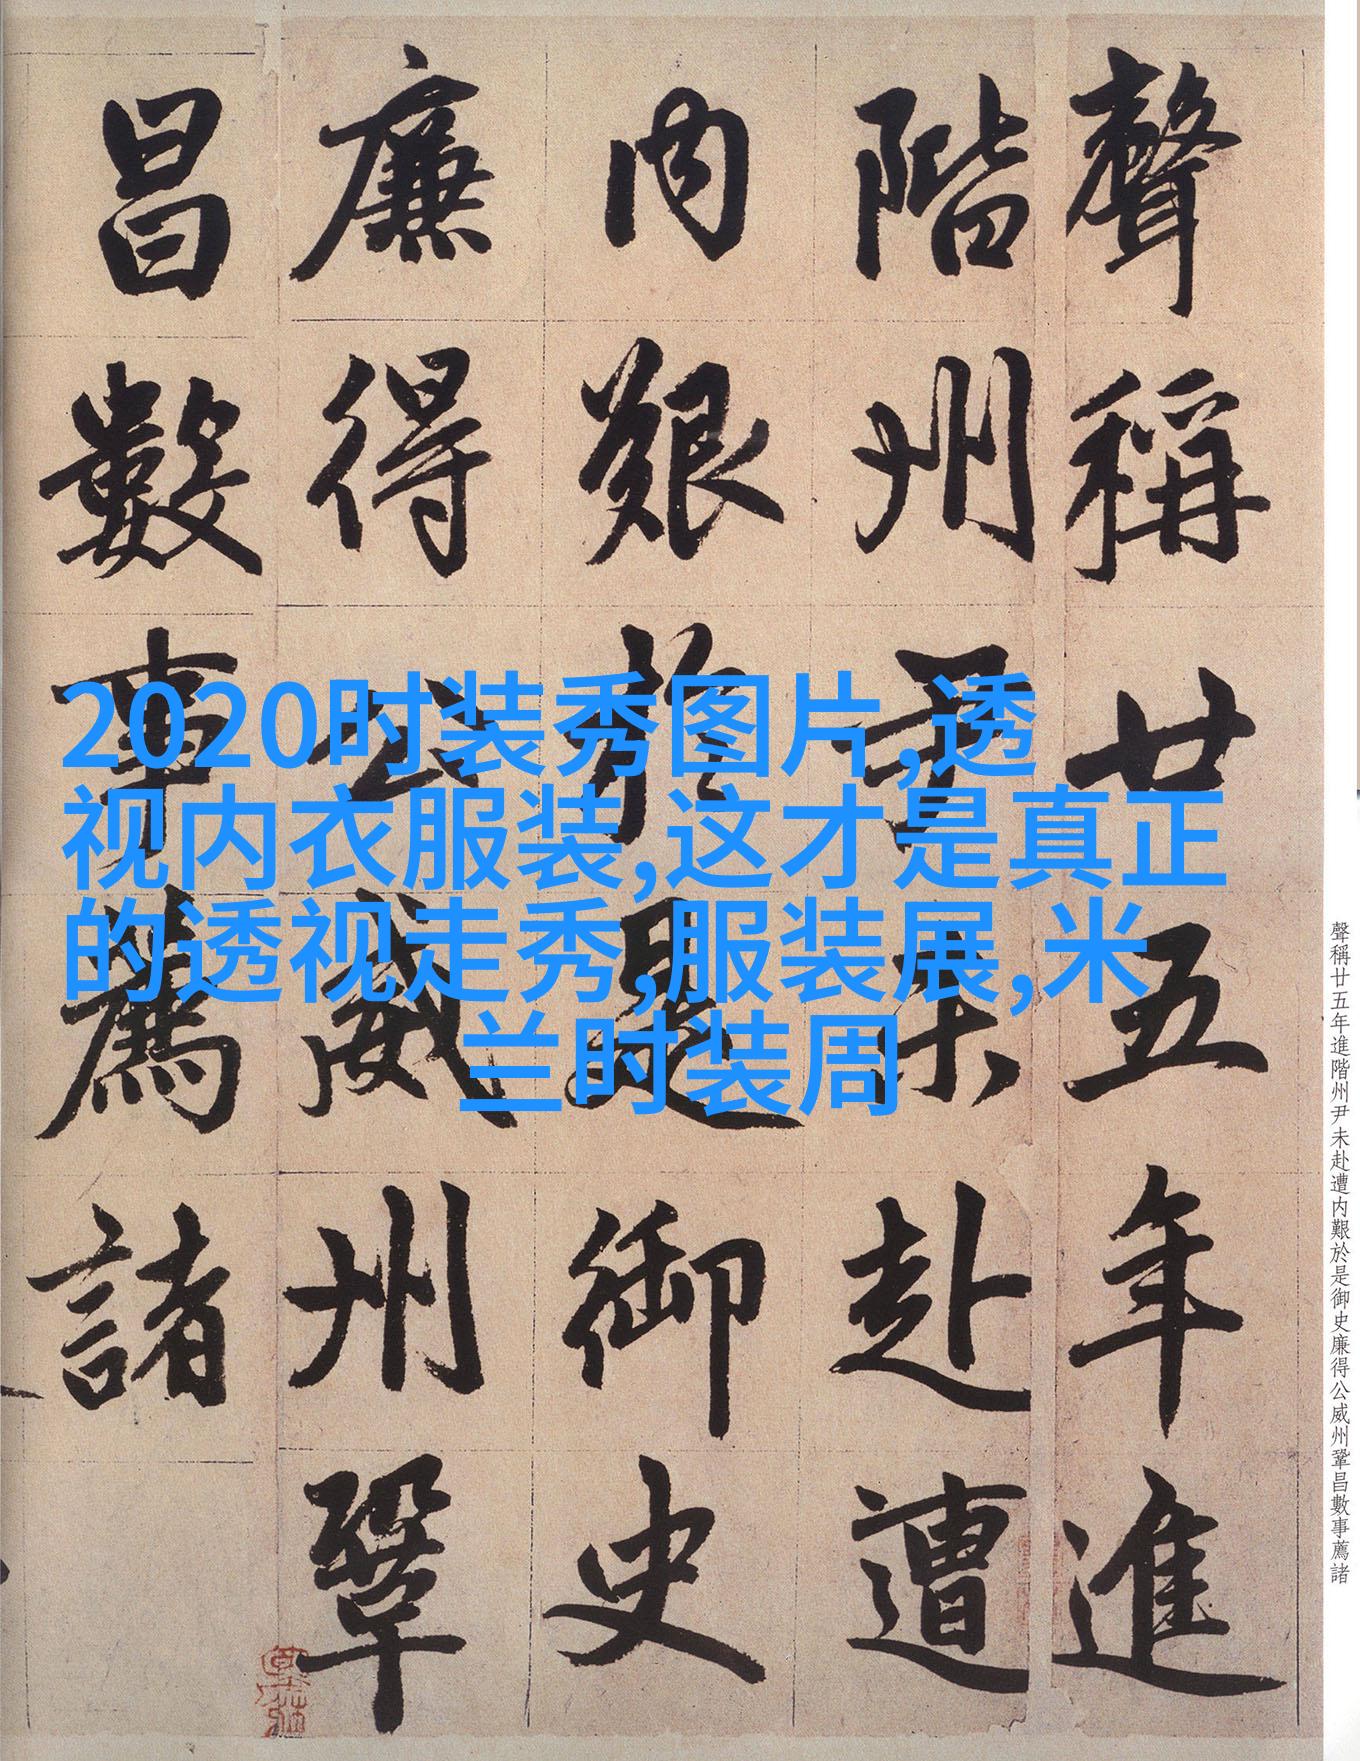 聲稱廿五年進
階州尹未赴遭
内艱於是御史
廉得公威州鞏
昌數事薦諸
2020时装秀图片,透
视内衣服装,这才是真正
的透视走秀,服装展,米
兰时装周
聲稱廿五年進階州尹未赴遭内艱於是御史廉得公威州鞏昌數事薦諸